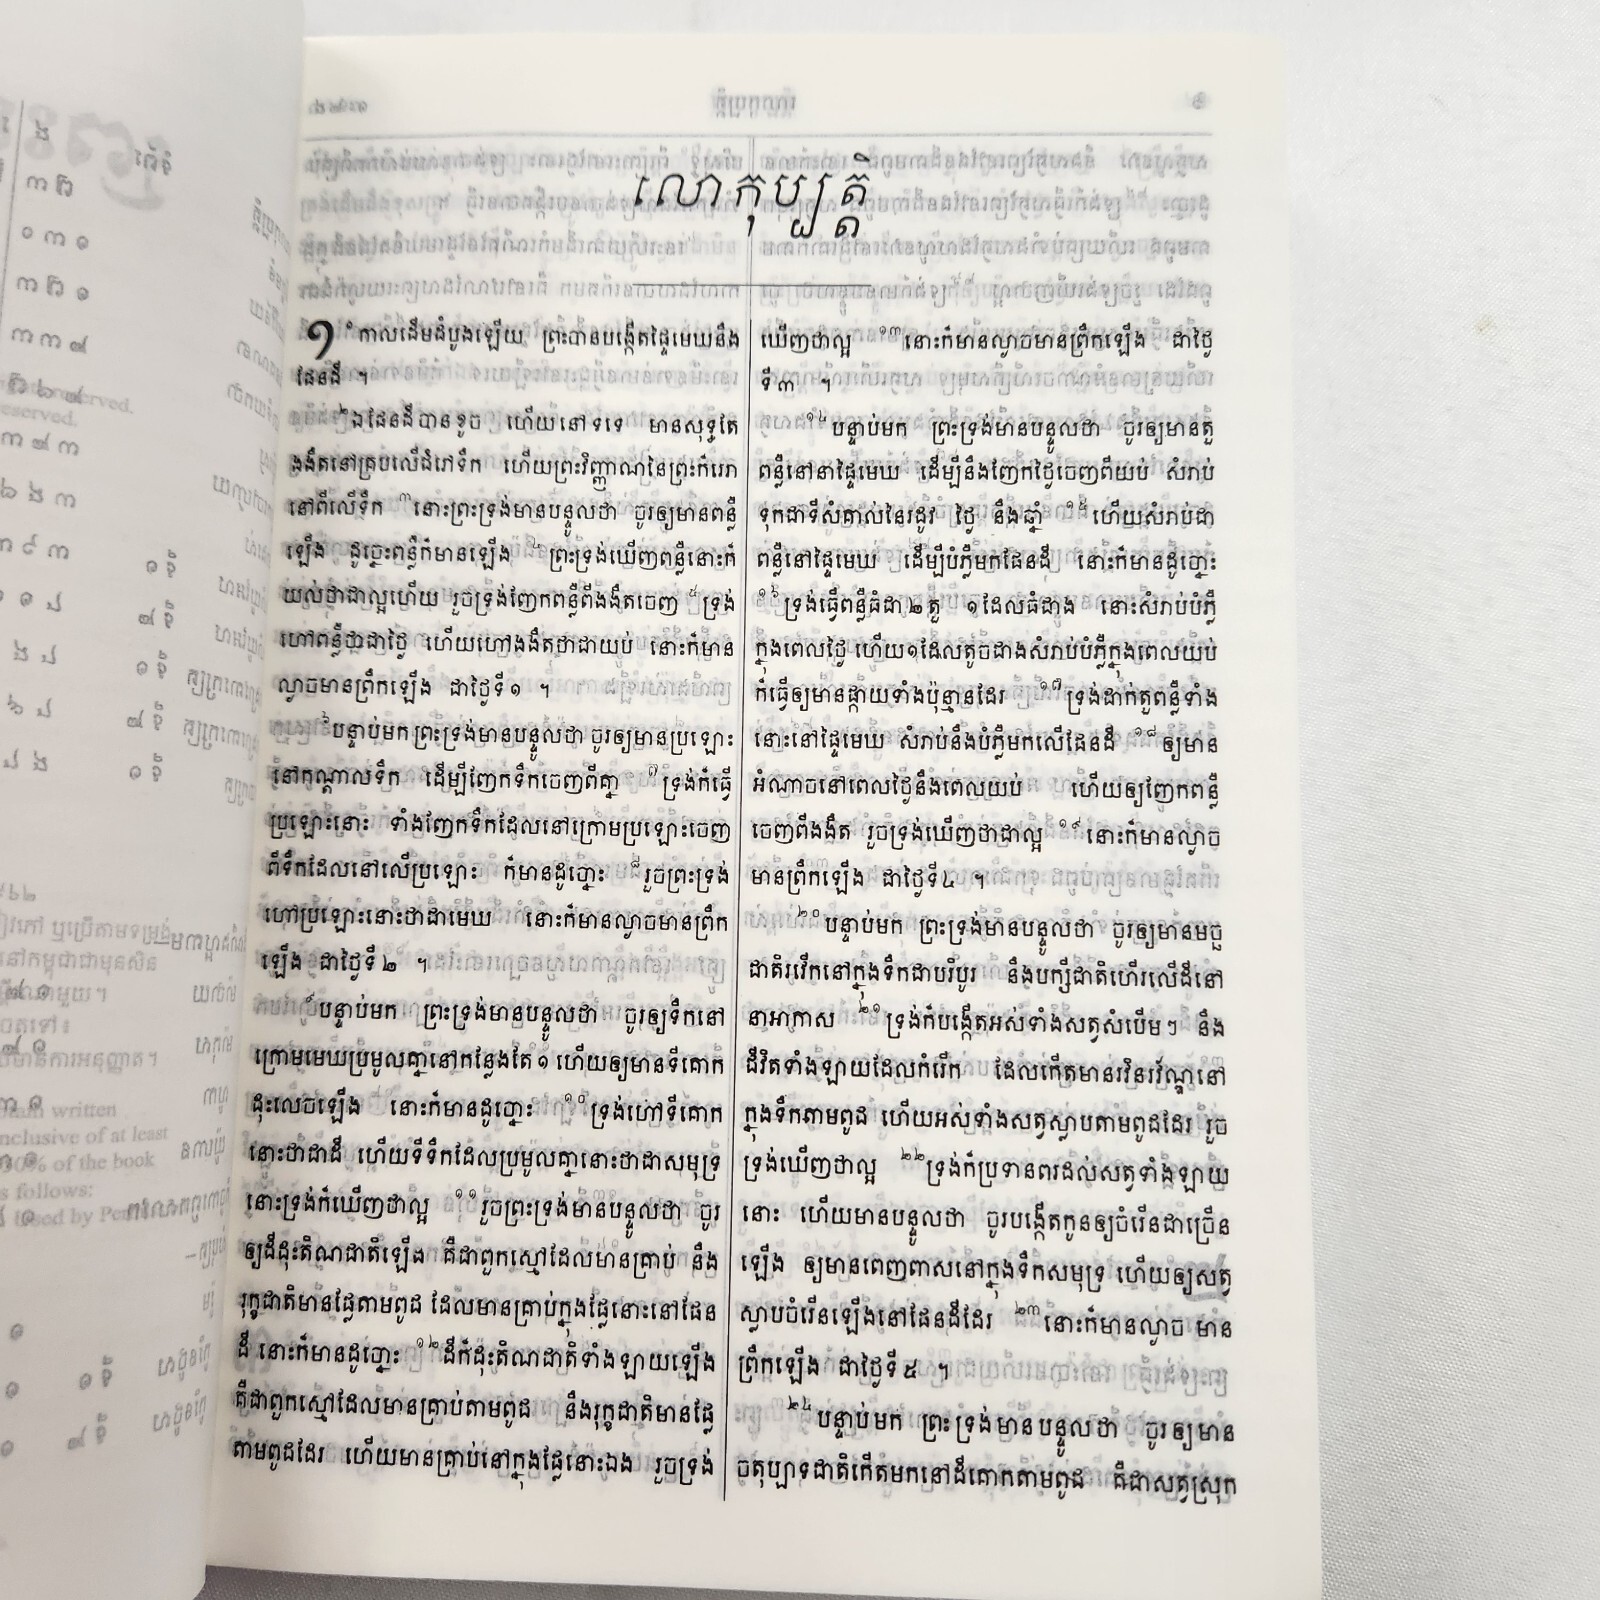 លោកុប្បត្តិ
១ ១កាលដើមដំបូងឡើយ ព្រះបានបង្កើតផ្ទៃមេឃនឹង
ផែនដី ។
២ឯផែនដីបានខូច ហើយនៅទទេ មានសុទ្ធតែ
ងងឹតនៅគ្របលើជំរៅទឹក ហើយព្រះវិញ្ញាណនៃព្រះក៏រេរា
នៅពីលើទឹក ៣នោះព្រះទ្រង់មានបន្ទូលថា ចូរឲ្យមានពន្លឺ
ឡើង ដូច្នេះពន្លឺក៏មានឡើង ៤ព្រះទ្រង់ឃើញពន្លឺនោះក៏
យល់ថាជាល្អហើយ រួចទ្រង់ញែកពន្លឺពីងងឹតចេញ ៥ទ្រង់
ហៅពន្លឺថាជាថ្ងៃ ហើយហៅងងឹតថាជាយប់ នោះក៏មាន
ល្ងាចមានព្រឹកឡើង ជាថ្ងៃទី១ ។
៦បន្ទាប់មកព្រះទ្រង់មានបន្ទូលថា ចូរឲ្យមានប្រឡោះ
នៅកណ្តាលទឹក ដើម្បីញែកទឹកចេញពីគ្នា ៧ទ្រង់ក៏ធ្វើ
ប្រឡោះនោះ ទាំងញែកទឹកដែលនៅក្រោមប្រឡោះចេញ
ពីទឹកដែលនៅលើប្រឡោះ ក៏មានដូច្នោះ ៨រួចព្រះទ្រង់
ហៅប្រឡោះនោះថាជាមេឃ នោះក៏មានល្ងាចមានព្រឹក
ឡើង ជាថ្ងៃទី២ ។
៩បន្ទាប់មក ព្រះទ្រង់មានបន្ទូលថា ចូរឲ្យទឹកនៅ
ក្រោមមេឃប្រមូលគ្នានៅកន្លែងតែ១ ហើយឲ្យមានទីគោក
ដុះលេចឡើង នោះក៏មានដូច្នោះ ១០ទ្រង់ហៅទីគោក
នោះថាជាដី ហើយទីទឹកដែលប្រមូលគ្នានោះថាជាសមុទ្រ
នោះទ្រង់ក៏ឃើញថាល្អ ១១រួចព្រះទ្រង់មានបន្ទូលថា ចូរ
ឲ្យដីដុះតិណជាតិឡើង គឺជាពួកស្មៅដែលមានគ្រាប់ នឹង
រុក្ខជាតិមានផ្លែតាមពូជ ដែលមានគ្រាប់ក្នុងផ្លែនោះនៅផែន
ដី នោះក៏មានដូច្នោះ ១២ដីក៏ដុះតិណជាតិទាំងឡាយឡើង
គឺជាពួកស្មៅដែលមានគ្រាប់តាមពូជ នឹងរុក្ខជាតិមានផ្លែ
តាមពូជដែរ ហើយមានគ្រាប់នៅក្នុងផ្លែនោះឯង រួចទ្រង់
ឃើញថាល្អ ១៣នោះក៏មានល្ងាចមានព្រឹកឡើង ជាថ្ងៃ
ទី៣ ។
១៤បន្ទាប់មក ព្រះទ្រង់មានបន្ទូលថា ចូរឲ្យមានតួ
ពន្លឺនៅនាផ្ទៃមេឃ ដើម្បីនឹងញែកថ្ងៃចេញពីយប់ សំរាប់
ទុកជាទីសំគាល់នៃរដូវ ថ្ងៃ នឹងឆ្នាំ ១៥ហើយសំរាប់ជា
ពន្លឺនៅផ្ទៃមេឃ ដើម្បីបំភ្លឺមកផែនដី នោះក៏មានដូច្នោះ
១៦ទ្រង់ធ្វើពន្លឺធំជា២តួ ១ដែលធំជាង នោះសំរាប់បំភ្លឺ
ក្នុងពេលថ្ងៃ ហើយ១ដែលតូចជាងសំរាប់បំភ្លឺក្នុងពេលយប់
ក៏ធ្វើឲ្យមានផ្កាយទាំងប៉ុន្មានដែរ ១៧ទ្រង់ដាក់តួពន្លឺទាំង
នោះនៅផ្ទៃមេឃ សំរាប់នឹងបំភ្លឺមកលើផែនដី ១៨ឲ្យមាន
អំណាចនៅពេលថ្ងៃនឹងពេលយប់ ហើយឲ្យញែកពន្លឺ
ចេញពីងងឹត រួចទ្រង់ឃើញថាជាល្អ ១៩នោះក៏មានល្ងាច
មានព្រឹកឡើង ជាថ្ងៃទី៤ ។
២០បន្ទាប់មក ព្រះទ្រង់មានបន្ទូលថា ចូរឲ្យមានមច្ឆ
ជាតិរវើកនៅក្នុងទឹកជាបរិបូរ នឹងបក្សីជាតិហើរលើដីនៅ
នាអាកាស ២១ទ្រង់ក៏បង្កើតអស់ទាំងសត្វសំបើមៗ នឹង
ជីវិតទាំងឡាយដែលកំរើក ដែលកើតមានរវិនរវ័ណ្ឌនៅ
ក្នុងទឹកតាមពូជ ហើយអស់ទាំងសត្វស្លាបតាមពូជដែរ រួច
ទ្រង់ឃើញថាល្អ ២២ទ្រង់ក៏ប្រទានពរដល់សត្វទាំងឡាយ
នោះ ហើយមានបន្ទូលថា ចូរបង្កើតកូនឲ្យចំរើនជាច្រើន
ឡើង ឲ្យមានពេញពាសនៅក្នុងទឹកសមុទ្រ ហើយឲ្យសត្វ
ស្លាបចំរើនឡើងនៅផែនដីដែរ ២៣នោះក៏មានល្ងាច មាន
ព្រឹកឡើង ជាថ្ងៃទី៥ ។
២៤បន្ទាប់មក ព្រះទ្រង់មានបន្ទូលថា ចូរឲ្យមាន
ចតុប្បាទជាតិកើតមកនៅដីគោកតាមពូជ គឺជាសត្វស្រុក